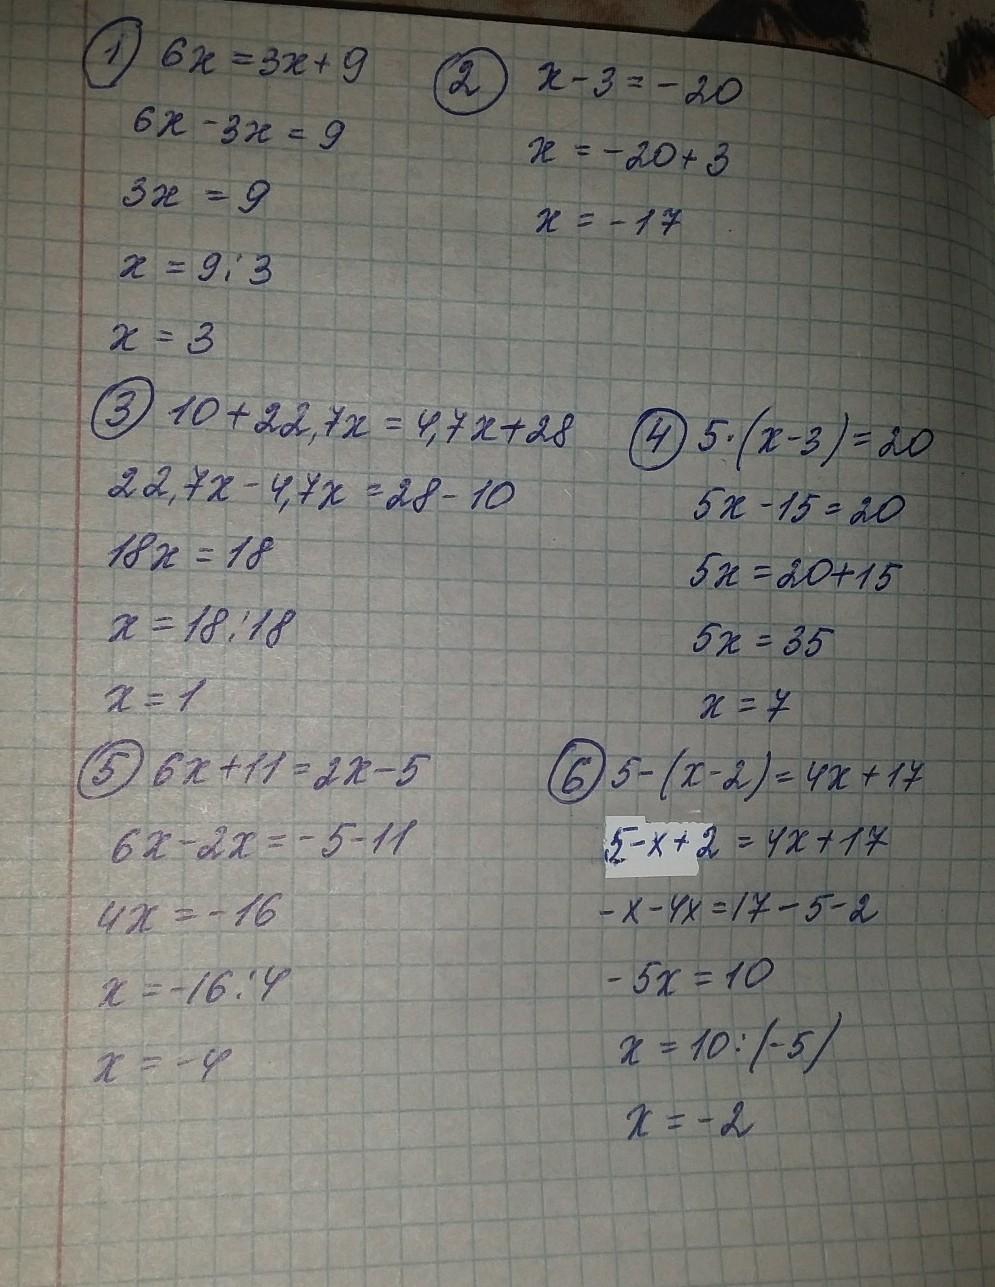 1 6x = 3x + 9
6x - 3x = 9
3x = 9
x = 9 : 3
x = 3
2 x - 3 = -20
x = -20 + 3
x = -17
3 10 + 22,7x = 4,7x + 28
22,7x - 4,7x = 28 - 10
18x = 18
x = 18 : 18
x = 1
4 5·(x - 3) = 20
5x - 15 = 20
5x = 20 + 15
5x = 35
x = 7
5 6x + 11 = 2x - 5
6x - 2x = -5 - 11
4x = -16
x = -16 : 4
x = -4
6 5 - (x - 2) = 4x + 17
5 - x + 2 = 4x + 17
-x - 4x = 17 - 5 - 2
-5x = 10
x = 10 : (-5)
x = -2